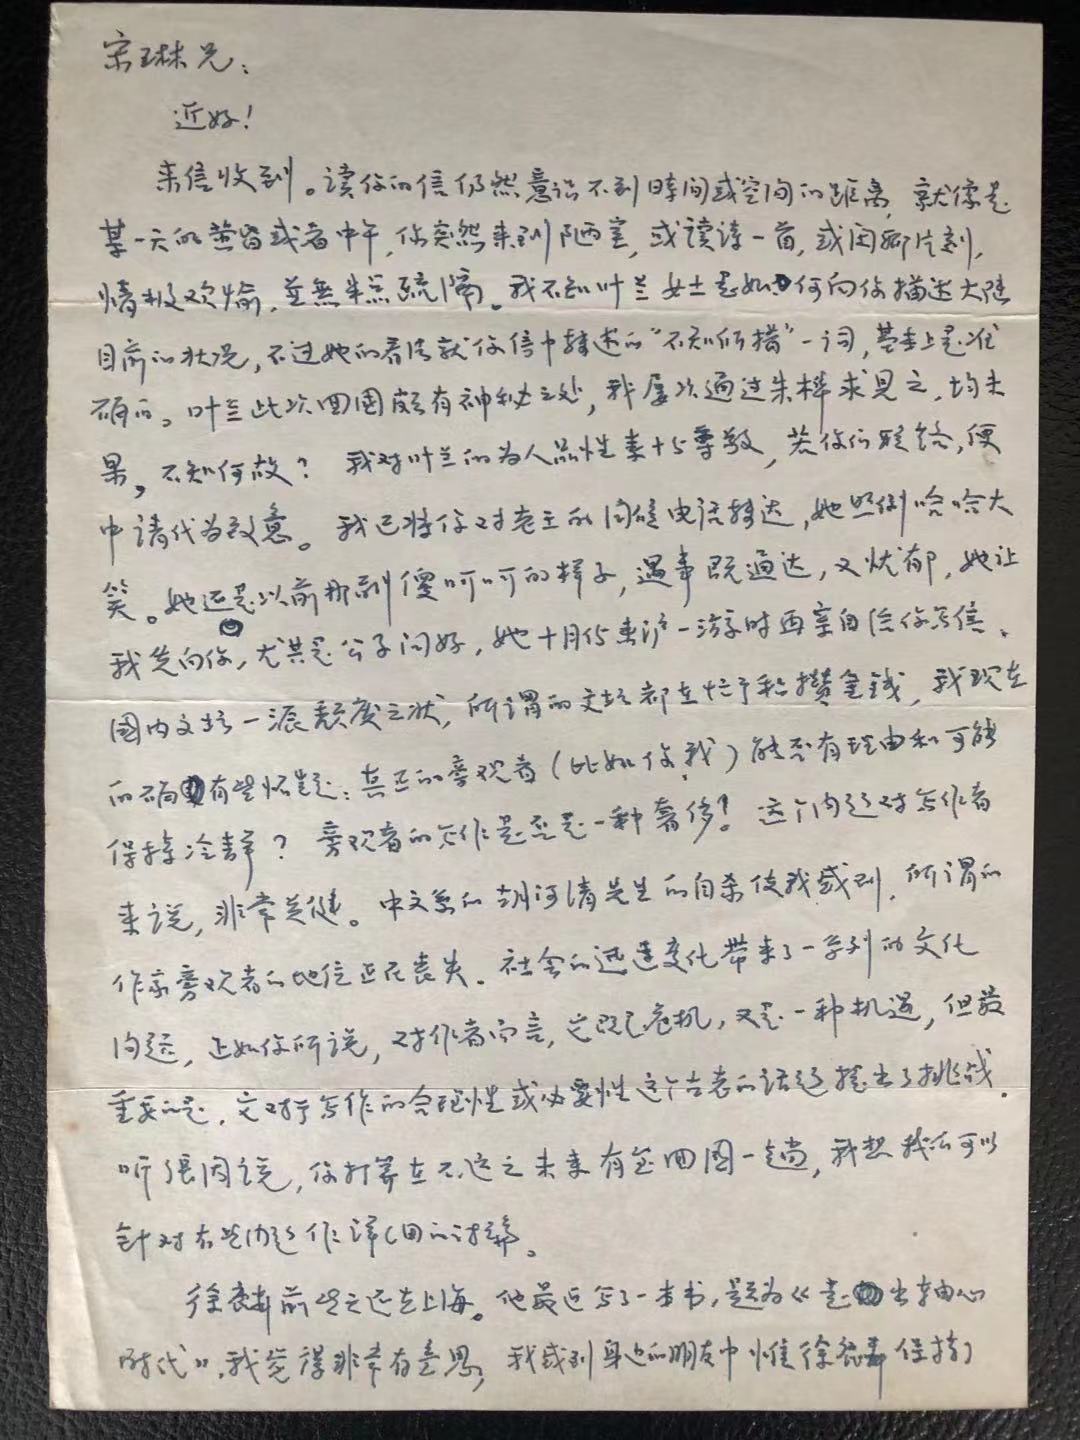 宋琳兄：
近好！
来信收到。读你的信仍然意识不到时间或空间的距离，就像是
某一天的黄昏或者中午，你突然来到陋室，或读诗一首，或闲聊片刻，
情极欢愉，並無半点疏隔。我不知叶兰女士是如何向你描述大陆
目前的状况，不过她的看法就你信中转述的“不知所措”一词，基本上是准
确的。叶兰此次回國颇有神秘之处，我屡次通过朱桦求见之，均未
果，不知何故？我对叶兰的为人品性素十分尊敬，若你们联络，便
中请代为致意。我已将你对老王的问候电话转达，她照例哈哈大
笑。她还是以前那副傻呵呵的样子，遇事既通达，又忧郁，她让
我先向你，尤其是公子问好，她十月份来沪一游时再亲自给你写信。
國内文坛一派颓废之状，所谓的文坛都在忙于积攒金钱，我现在
的确有些怀疑：真正的旁观者（比如你、我）能否有理由和可能
保持冷静？旁观者的写作是否是一种奢侈？这个问题对写作者
来说，非常关键。中文系的胡河清先生的自杀使我感到，所谓的
作家旁观者的地位正在丧失。社会的迅速变化带来了一系列的文化
问题，正如你所说，对作者而言，它既是危机，又是一种机遇，但最
重要的是，它对于写作的合理性或必要性这个古老的话题提出了挑战。
听張闳说，你打算在不远之未来有望回國一趟，我想我们可以
针对有些问题作详细的讨论。
徐麟前些天还在上海。他最近写了一本书，题为《走出轴心
时代》，我觉得非常有意思，我感到身边的朋友中惟徐麟保持了